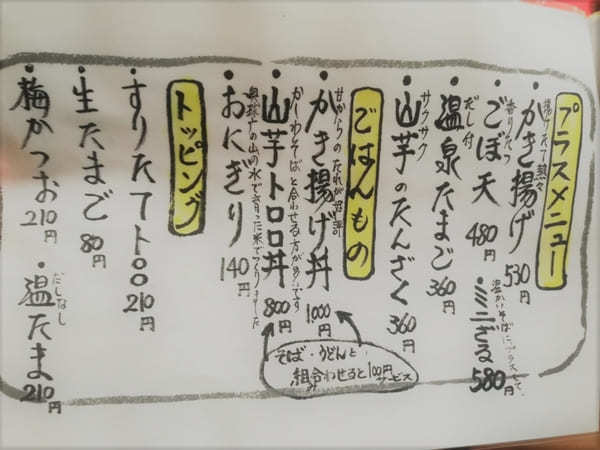 プラスメニュー
揚げたて熱々
・かき揚げ 530円
香りたつ
・ごぼ天 480円
温かいそばにプラスして、
・ミニざる 580円
だし付
・温泉たまご 360円
サクサク
・山芋のたんざく 360円
ごはんもの
甘からのたれが好評
・かき揚げ丼 1000円
かしわそばと合わせる方が多いです
・山芋トロロ丼 800円
・おにぎり 140円
そば・うどんと、
組合わせると100円
サービス
トッピング
・すりたてトロロ 210円
・生たまご 80円
・梅かつお 210円
だしなし
・温たま 210円